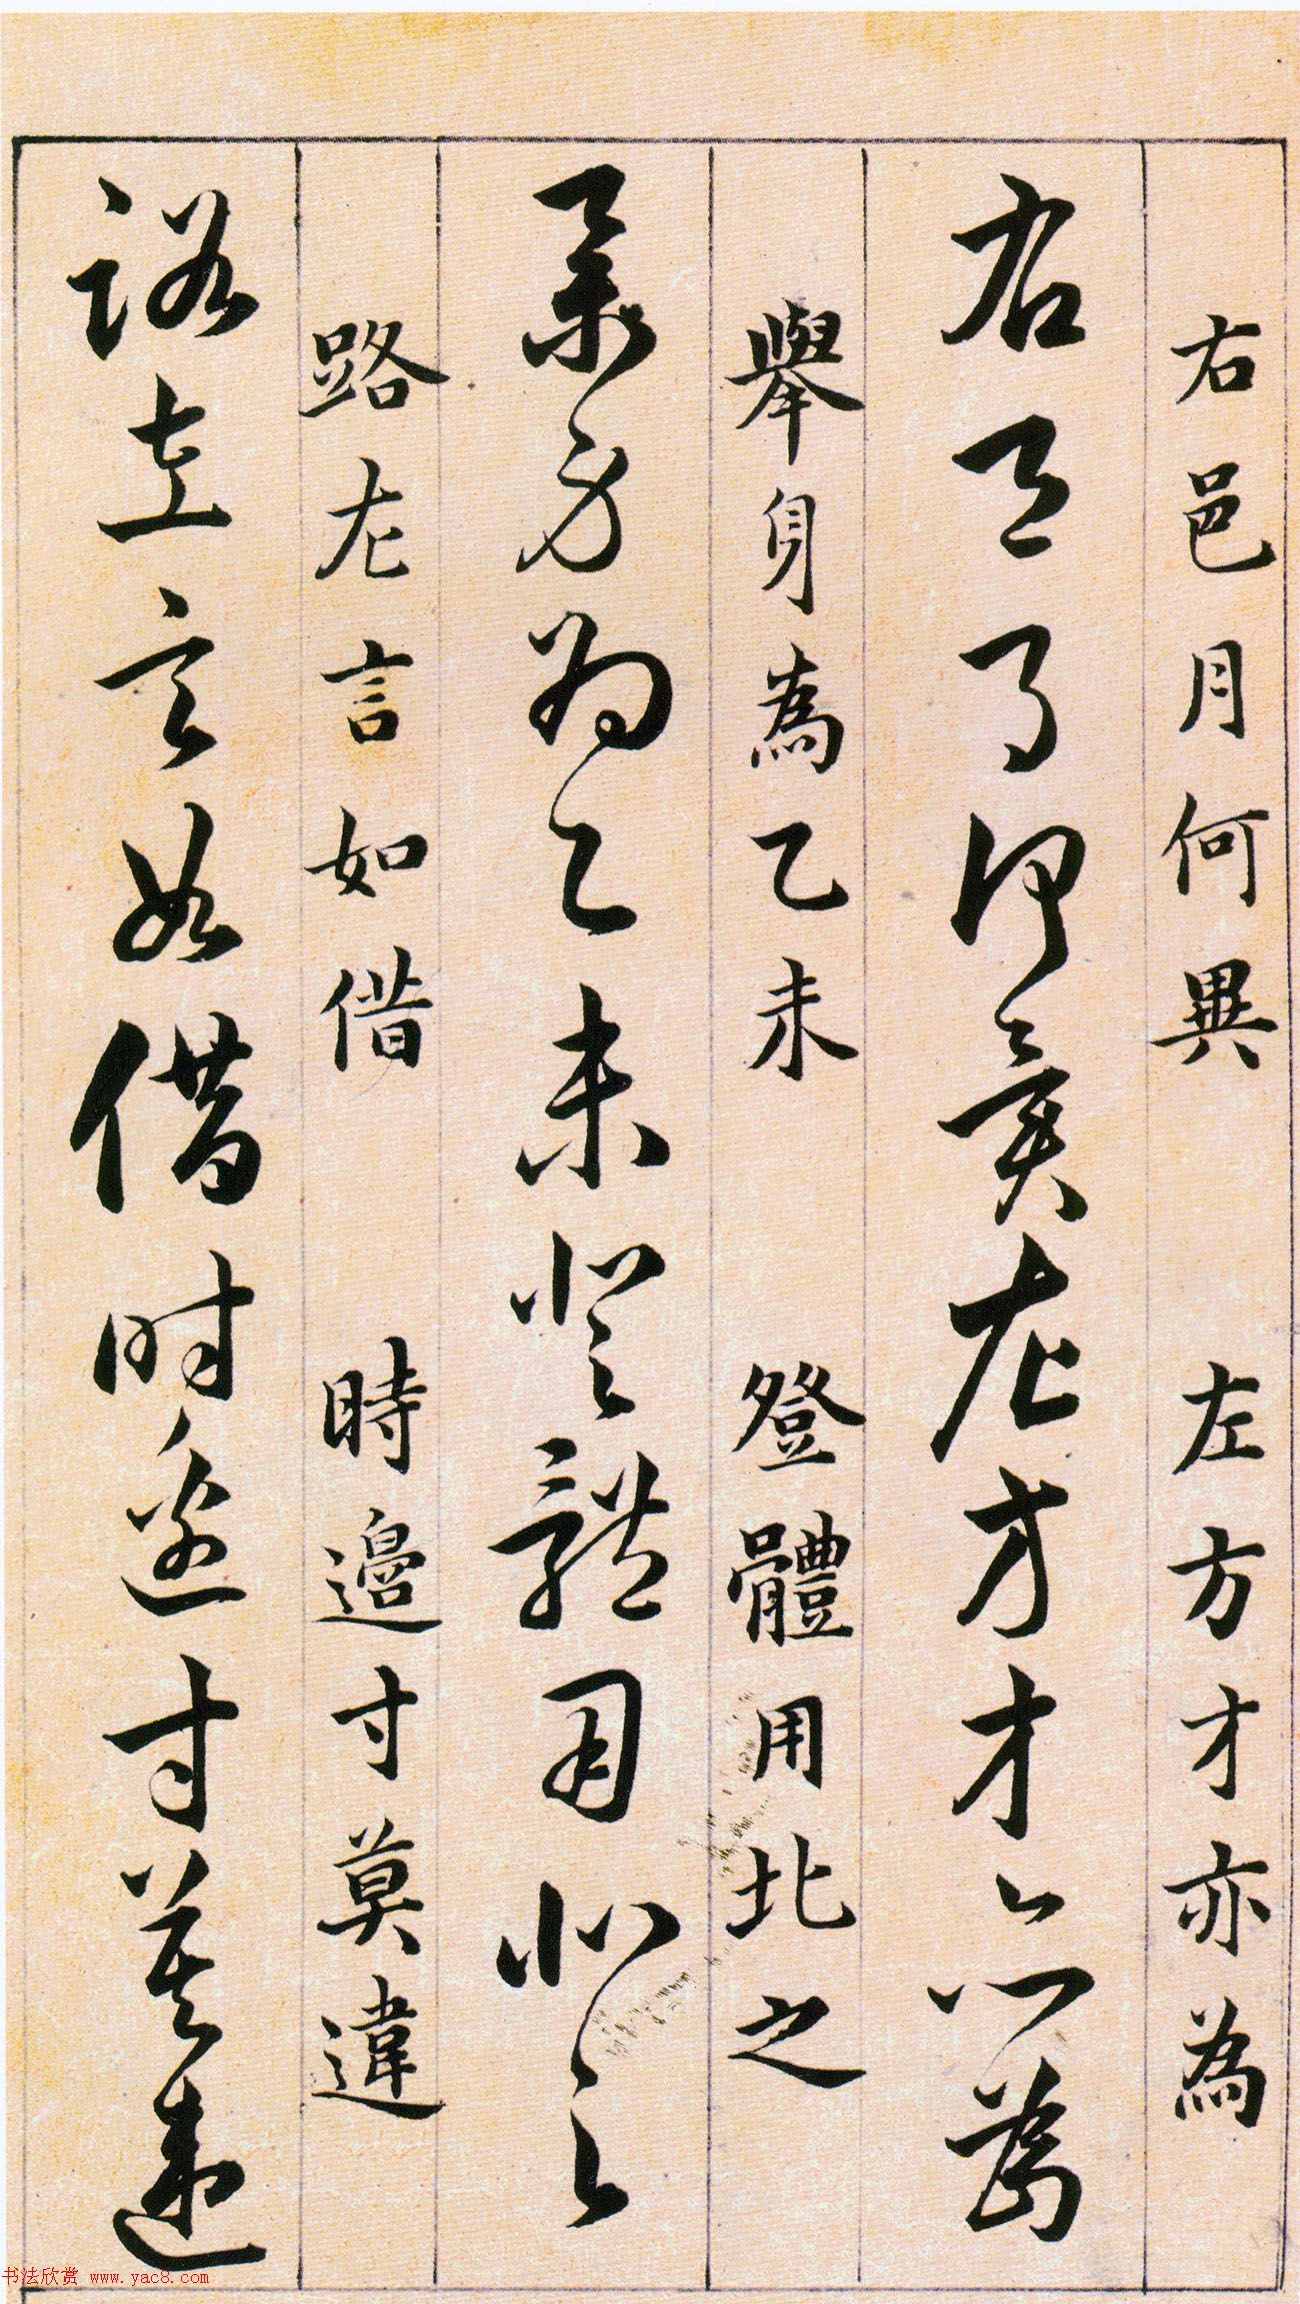 右邑月何異　左方才亦為
右邑月何異左方才亦為
舉身為乙未　登體用北之
舉身為乙未登體用北之
路左言如借　時邊寸莫違
路左言如借時邊寸莫違
书法欣赏 www.yac8.com